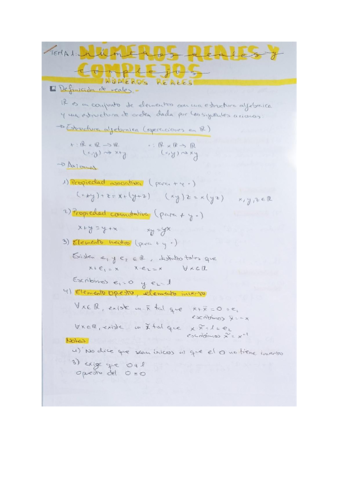 TEMA 1
NÚMEROS REALES Y
COMPLEJOS
NÚMEROS REALES
Definición de reales -
ℝ es un conjunto de elementos con una estructura algebraica
y una estructura de orden dada por los siguientes axiomas.
→ Estructura algebraica (operaciones en ℝ)
+: ℝ × ℝ → ℝ · : ℝ × ℝ → ℝ
(x,y) → x+y (x,y) → xy
→ Axiomas
1) Propiedad asociativa (para + y ·)
(x+y)+z = x+(y+z) (xy)z = x(yz) x,y,z ∈ ℝ
2) Propiedad conmutativa (para + y ·)
x+y = y+x xy = yx
3) Elemento neutro (para + y ·)
Existen e₁ y e₂ ∈ ℝ, distintos tales que
x+e₁ = x x·e₂ = x ∀x∈ℝ
Escribimos e₁ = 0 y e₂ = 1
4) Elemento opuesto, elemento inverso
∀x∈ℝ, existe un x̃ tal que x+x̃ = 0 = e₁
escribimos x̃ = -x
∀x∈ℝ, existe un x̃ tal que x x̃ = 1 = e₂
escribimos x̃ = x⁻¹
Notas:
a) No dice que sean únicos ni que el 0 no tiene inverso
b) exige que 0≠1
opuesto del 0 = 0